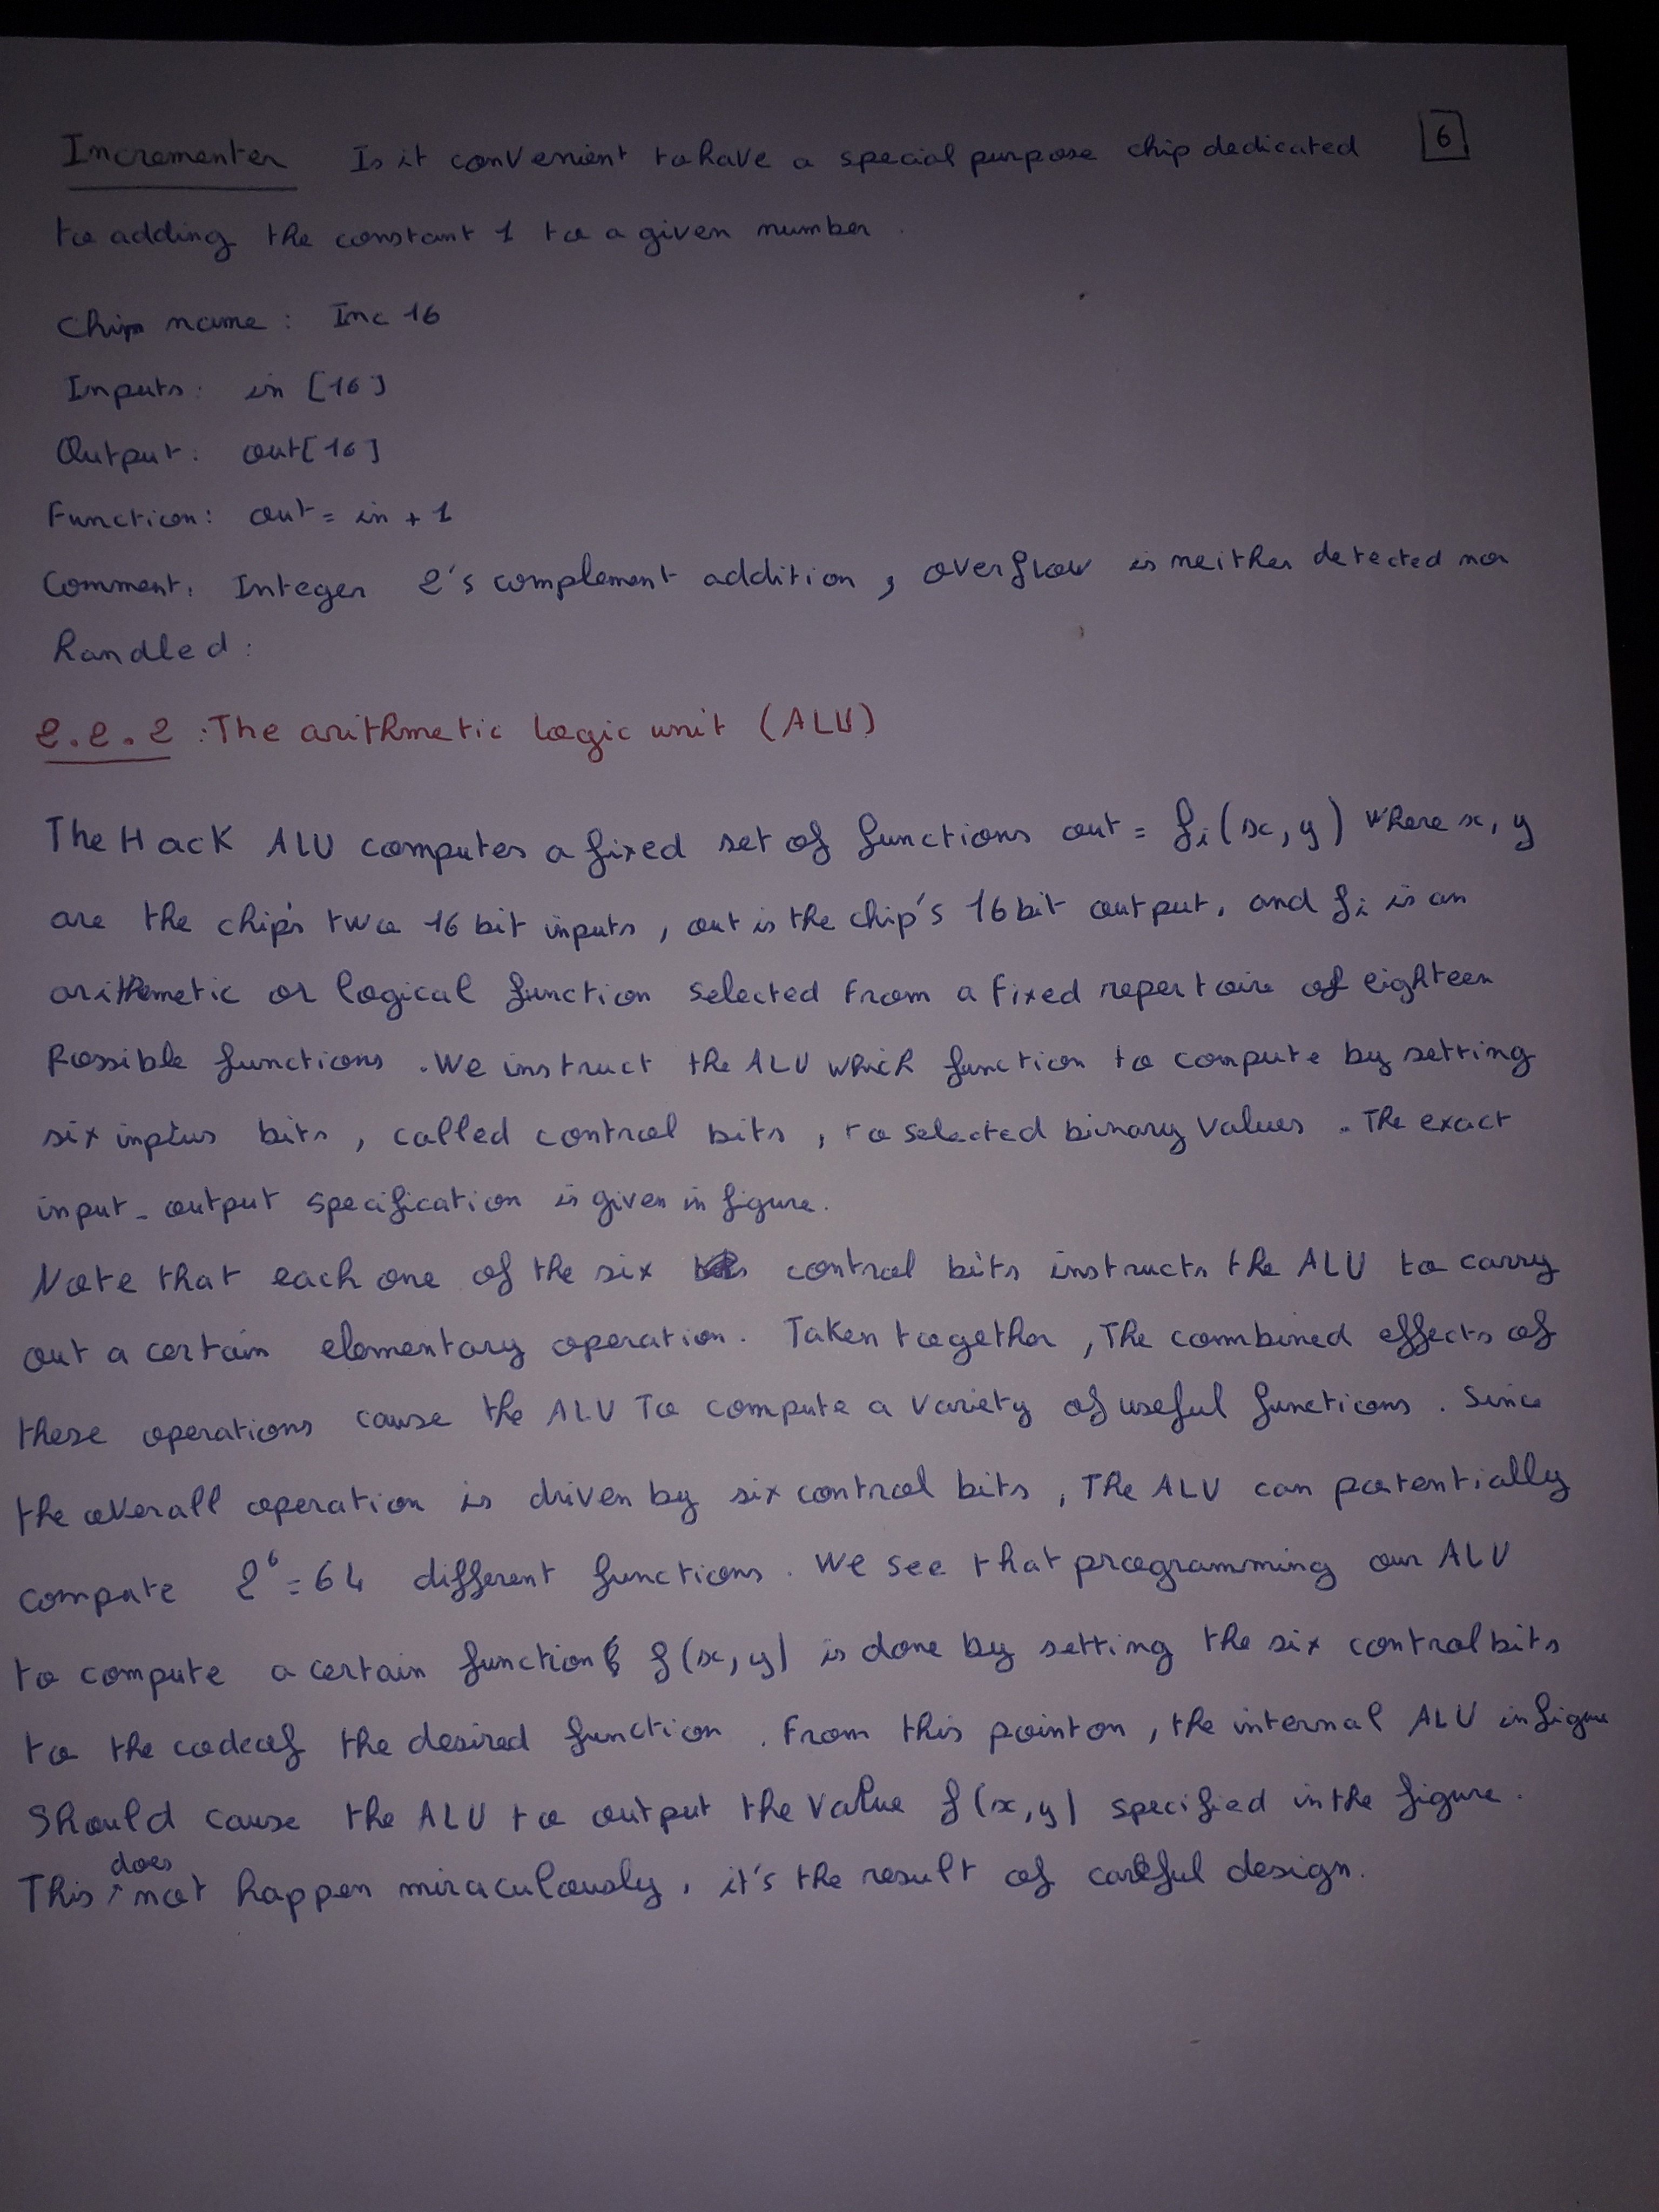 Incrementer Is it convenient to have a special purpose chip dedicated 6
to adding the constant 1 to a given number.
Chip name : Inc 16
Inputs: in [16]
Output: out[16]
Function: out = in + 1
Comment: Integer 2's complement addition, overflow is neither detected nor
handled:
2.2.2 : The arithmetic logic unit (ALU)
The Hack ALU computes a fixed set of functions out = fi(x, y) where x, y
are the chip's two 16 bit inputs, out is the chip's 16 bit output, and fi is an
arithemetic or logical function selected from a fixed repertoire of eighteen
Possible functions. We instruct the ALU which function to compute by setting
six inptus bits, called control bits, to selected binary values. The exact
input-output specification is given in figure.
Note that each one of the six control bits instructs the ALU to carry
out a certain elementary operation. Taken together, The combined effects of
these operations cause the ALU To compute a variety of useful functions. Since
the overall operation is driven by six control bits, The ALU can potentially
compute 2^6 = 64 different functions. We see that programming our ALU
to compute a certain function f(x, y) is done by setting the six control bits
to the code of the desired function. From this point on, the internal ALU in figure
Should cause the ALU to output the value f(x, y) specified in the figure.
This does not happen miraculously, it's the result of careful design.